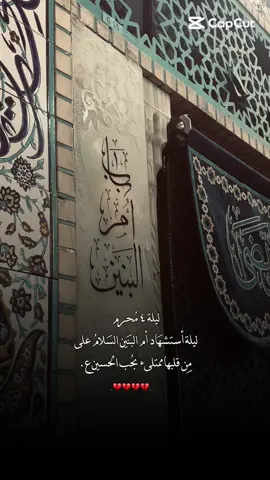 CapCut
يا
أم
البنين
ليلة ٤ مُحرم
ليلة أستشهَاد أم البَنين السَلامُ على
مِن قلبها ممتلىء بحُب الحسين ع .
💔💔💔💔